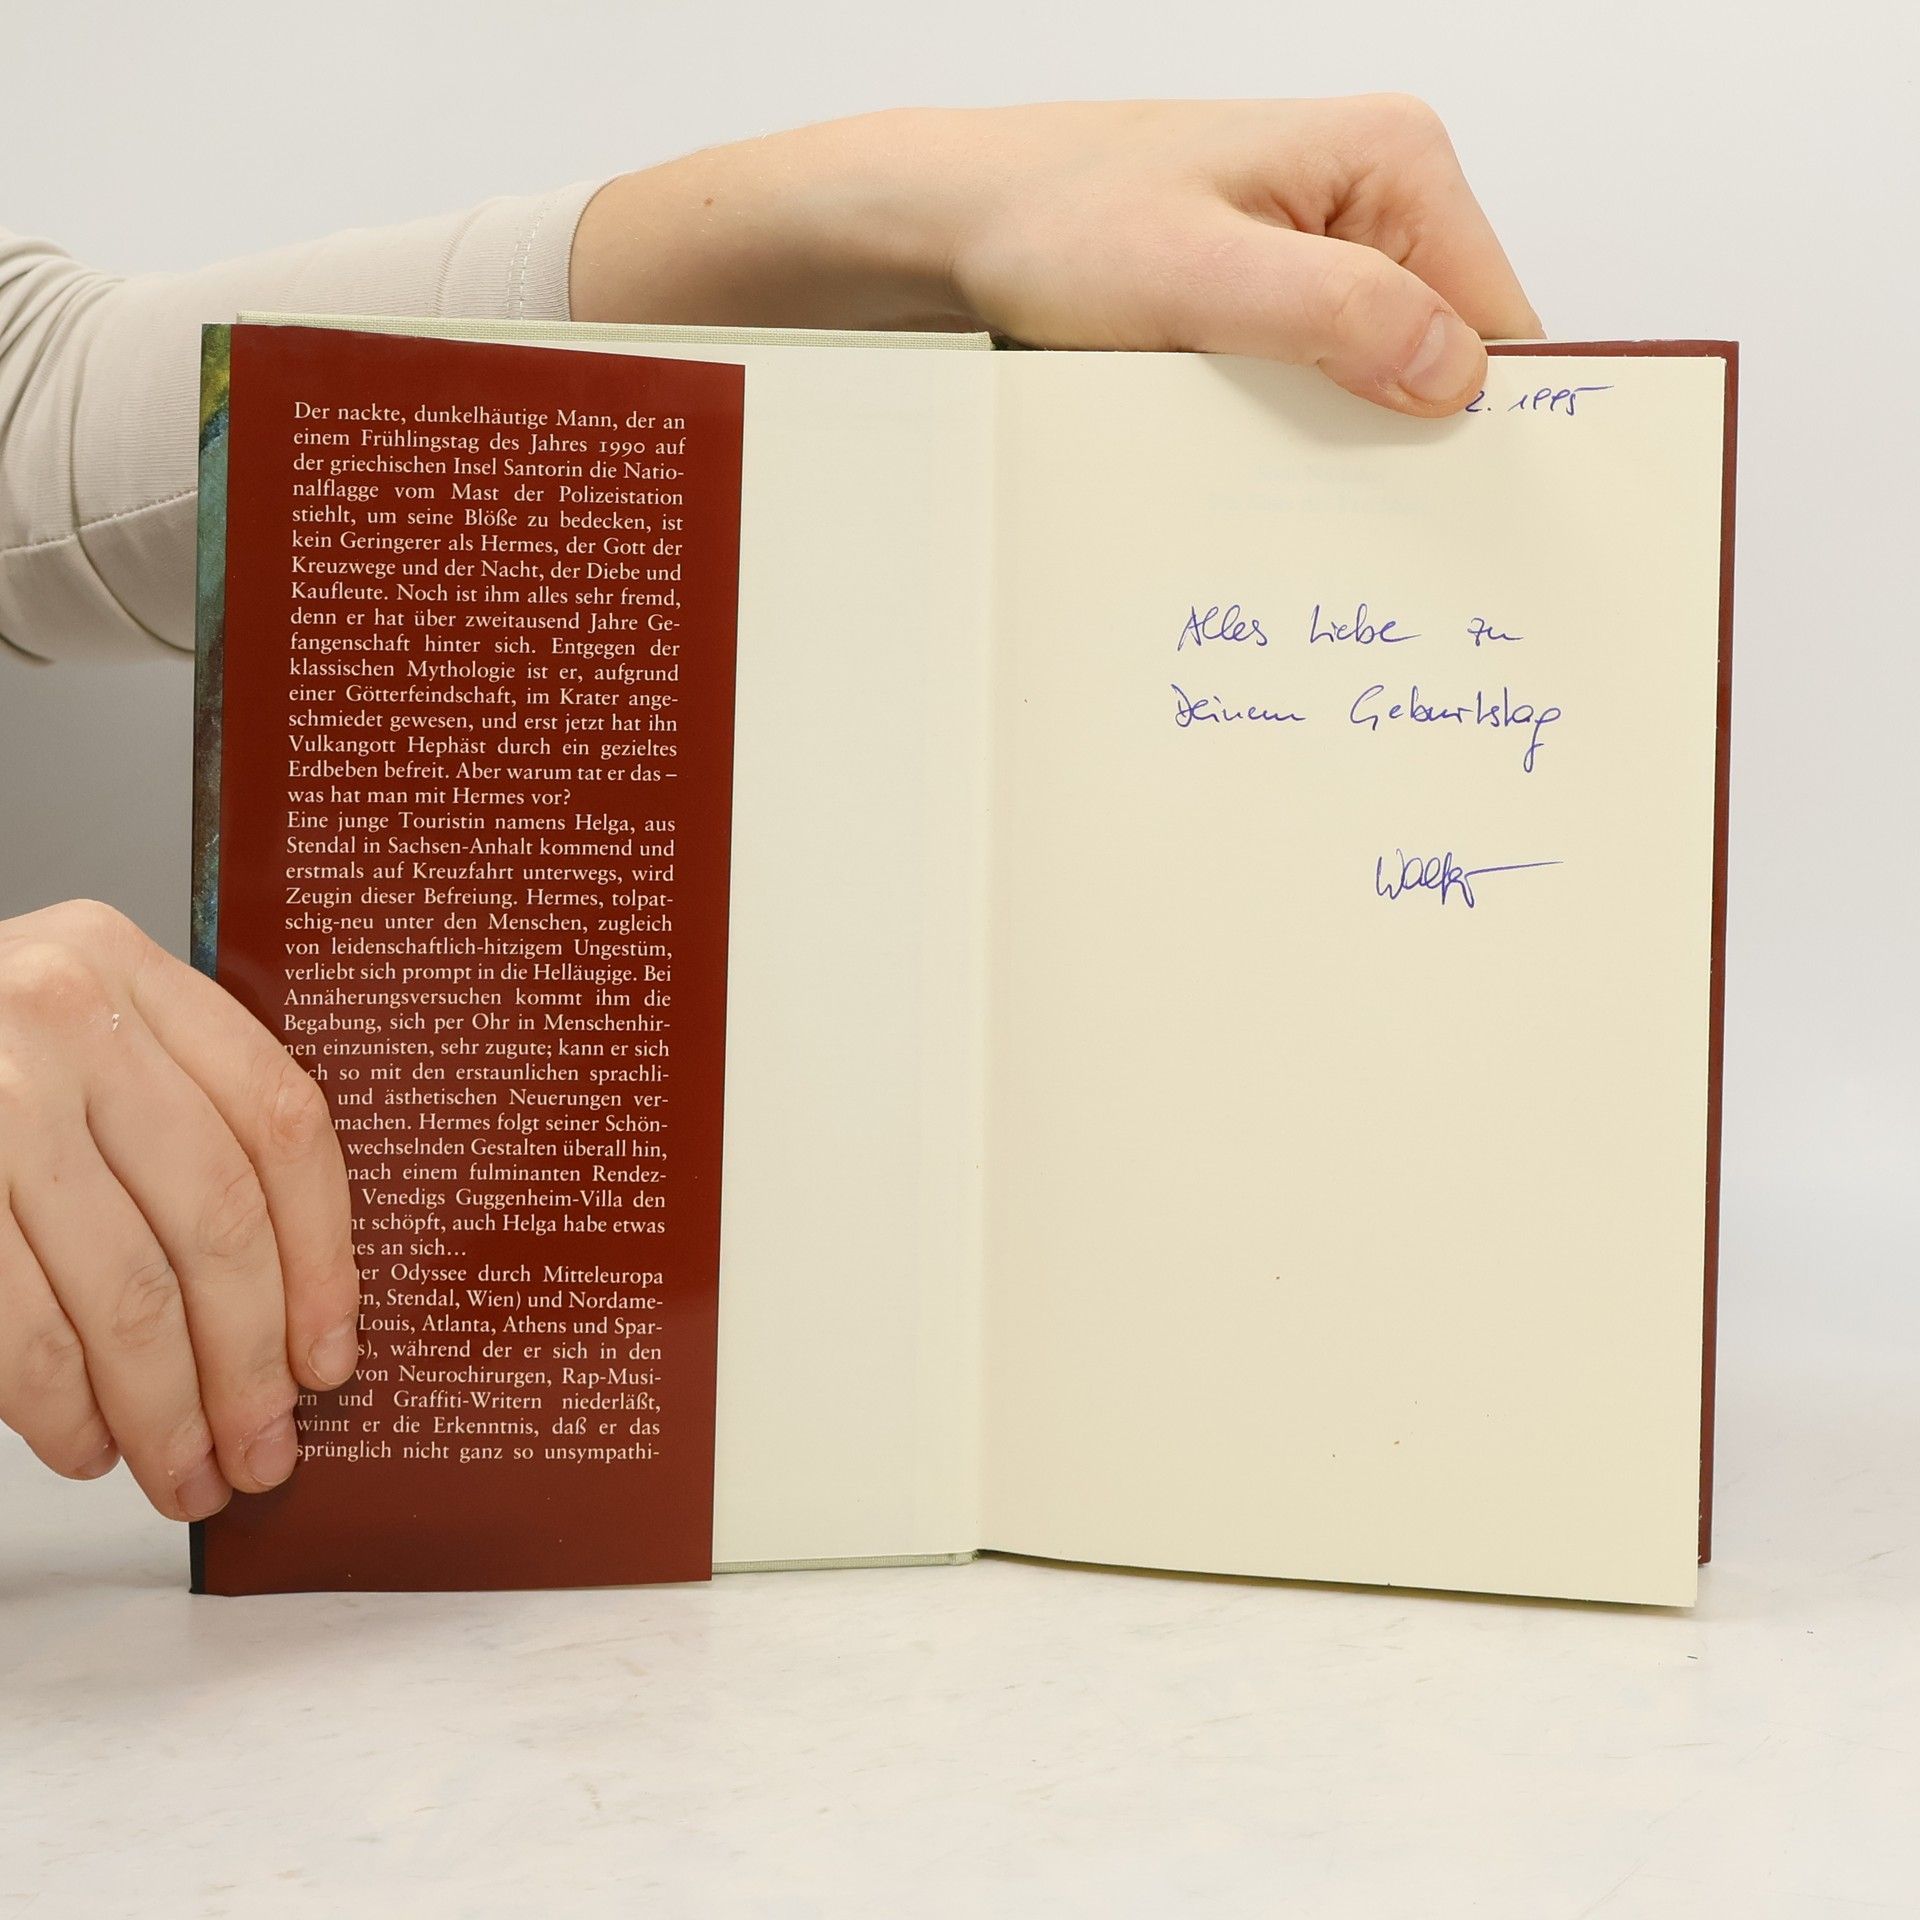 Der nackte, dunkelhäutige Mann, der an
einem Frühlingstag des Jahres 1990 auf
der griechischen Insel Santorin die Natio-
nalflagge vom Mast der Polizeistation
stiehlt, um seine Blöße zu bedecken, ist
kein Geringerer als Hermes, der Gott der
Kreuzwege und der Nacht, der Diebe und
Kaufleute. Noch ist ihm alles sehr fremd,
denn er hat über zweitausend Jahre Ge-
fangenschaft hinter sich. Entgegen der
klassischen Mythologie ist er, aufgrund
einer Götterfeindschaft, im Krater ange-
schmiedet gewesen, und erst jetzt hat ihn
Vulkangott Hephäst durch ein gezieltes
Erdbeben befreit. Aber warum tat er das –
was hat man mit Hermes vor?
Eine junge Touristin namens Helga, aus
Stendal in Sachsen-Anhalt kommend und
erstmals auf Kreuzfahrt unterwegs, wird
Zeugin dieser Befreiung. Hermes, tolpat-
schig-neu unter den Menschen, zugleich
von leidenschaftlich-hitzigem Ungestüm,
verliebt sich prompt in die Helläugige. Bei
Annäherungsversuchen kommt ihm die
Begabung, sich per Ohr in Menschenhir-
nen einzunisten, sehr zugute; kann er sich
ch so mit den erstaunlichen sprachli-
und ästhetischen Neuerungen ver-
machen. Hermes folgt seiner Schön-
wechselnden Gestalten überall hin,
nach einem fulminanten Rendez-
Venedigs Guggenheim-Villa den
ht schöpft, auch Helga habe etwas
hes an sich...
er Odyssee durch Mitteleuropa
en, Stendal, Wien) und Nordame-
Louis, Atlanta, Athens und Spar-
s), während der er sich in den
von Neurochirurgen, Rap-Musi-
rn und Graffiti-Writern niederläßt,
winnt er die Erkenntnis, daß er das
sprünglich nicht ganz so unsympathi-
2. 1995
Alles Liebe zu
Deinem Geburtstag